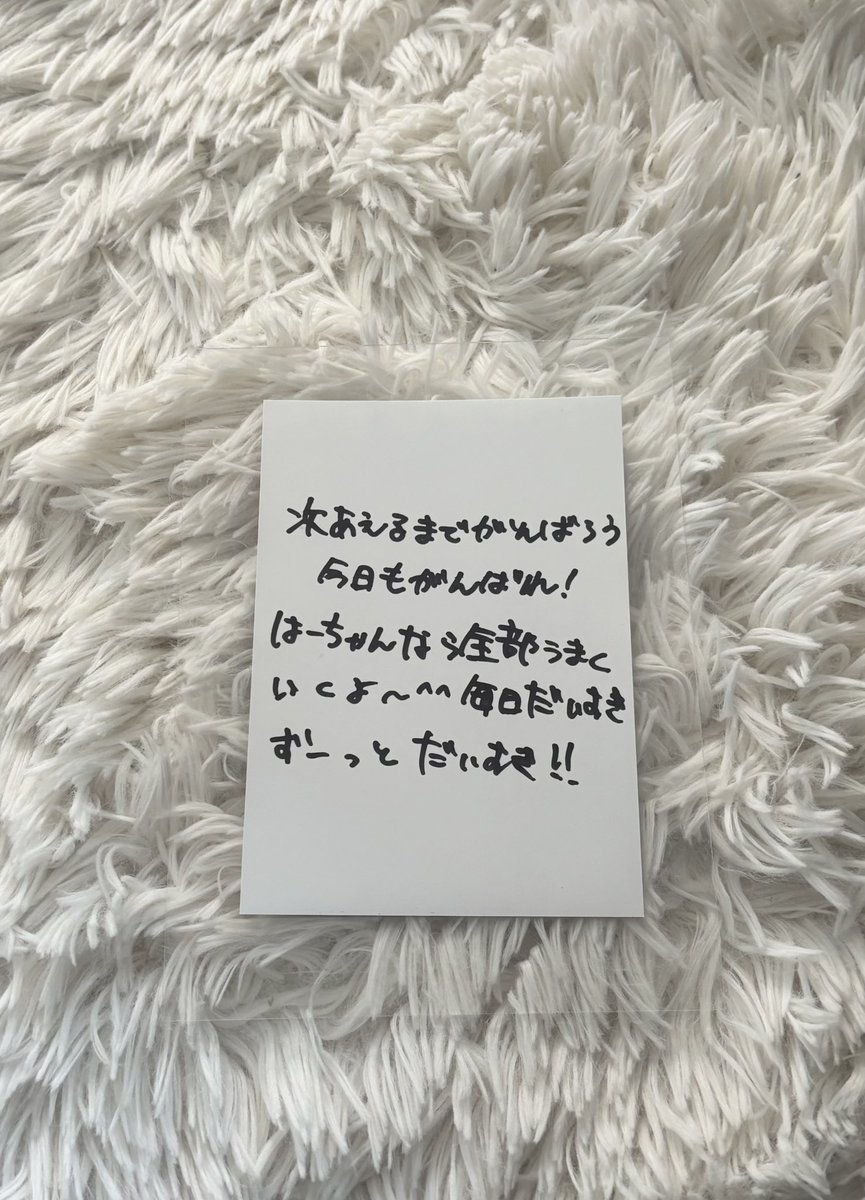 次あえるまでがんばろう
今日もがんばれ!
はーちゃんなら全部うまく
いくよ〜^^ 毎日だいすき
ずーっと だいすき!!